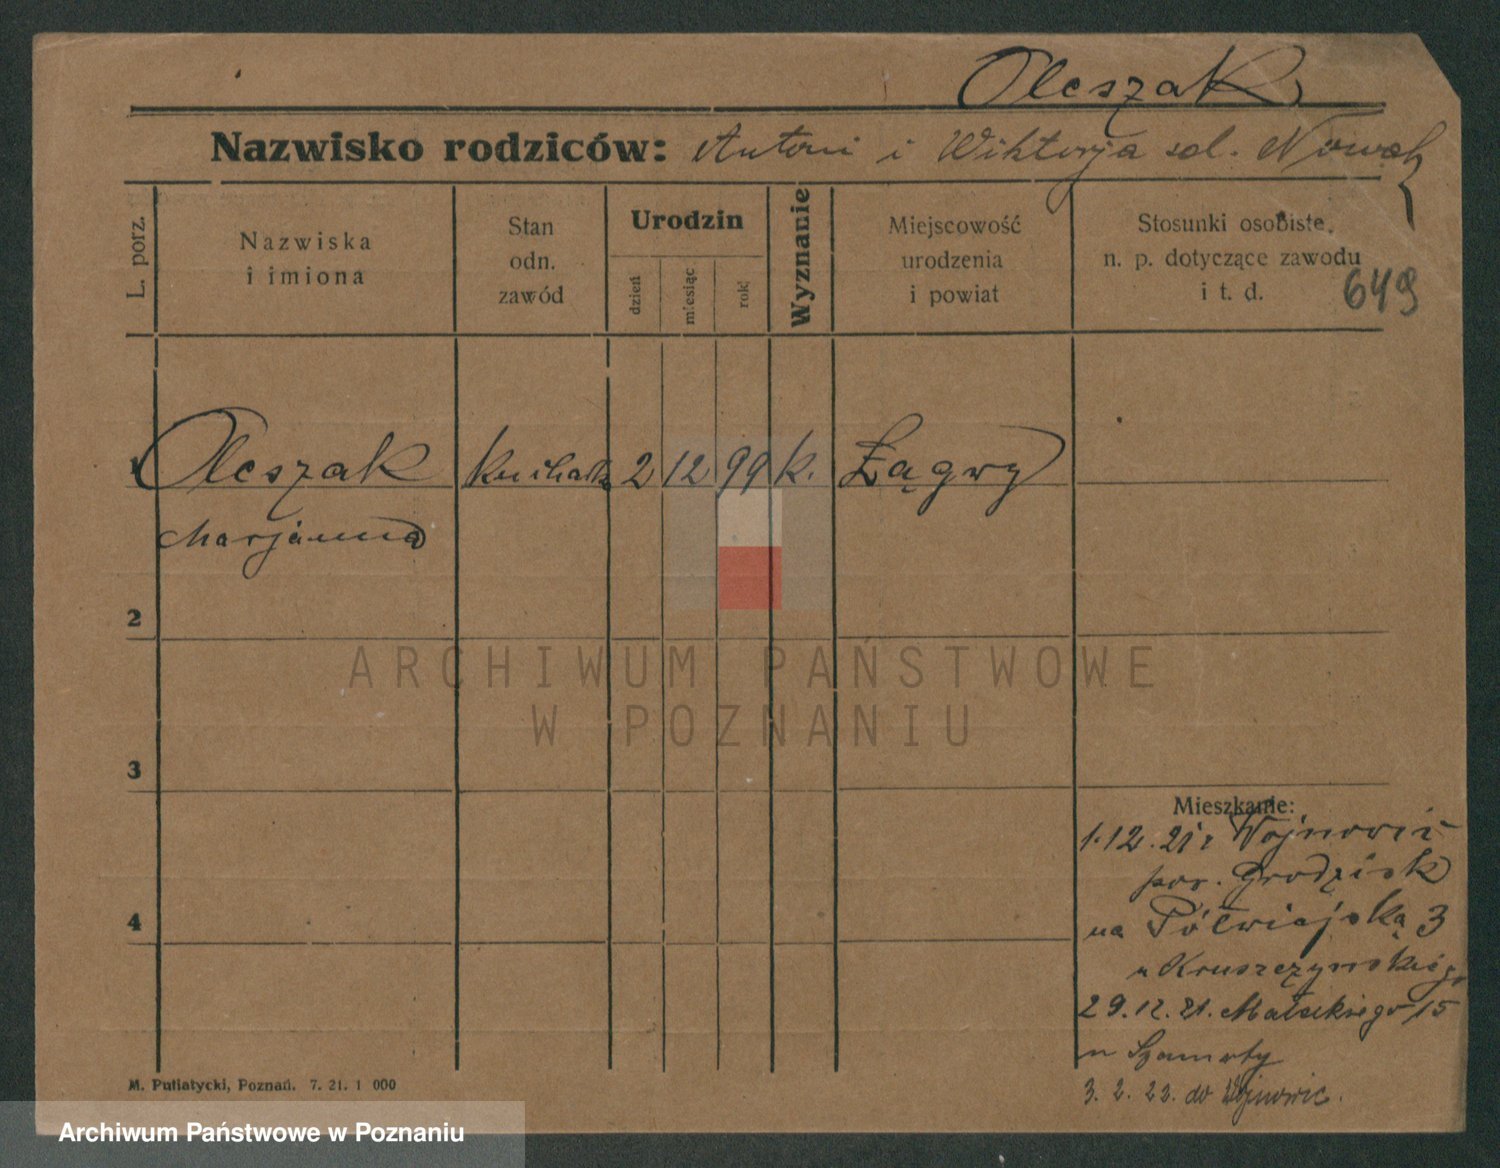 Oleszak
Nazwisko rodziców: Antoni i Wiktorja Nowak
L. porz.
Nazwiska
i imiona
Stan
odn.
zawód
Urodzin
dzień
miesiąc
rok
Wyznanie
Miejscowość
urodzenia
i powiat
Stosunki osobiste,
n. p. dotyczące zawodu
i t. d.
649
1 Oleszak kucharka 2 12 99 k. Łągwy
Marjanna
2
3
4
ARCHIWUM PAŃSTWOWE
W POZNANIU
Mieszkanie:
1.12.21 r Wojnowic
pow. Grodzisk
na Półwiejską 3
u Kruszczyńskiego
29.12.21. Małeckiego 15
u
3. 2. 23. do Wojnowic.
M. Putiatycki, Poznań. 7. 21. 1 000
Archiwum Państwowe w Poznaniu